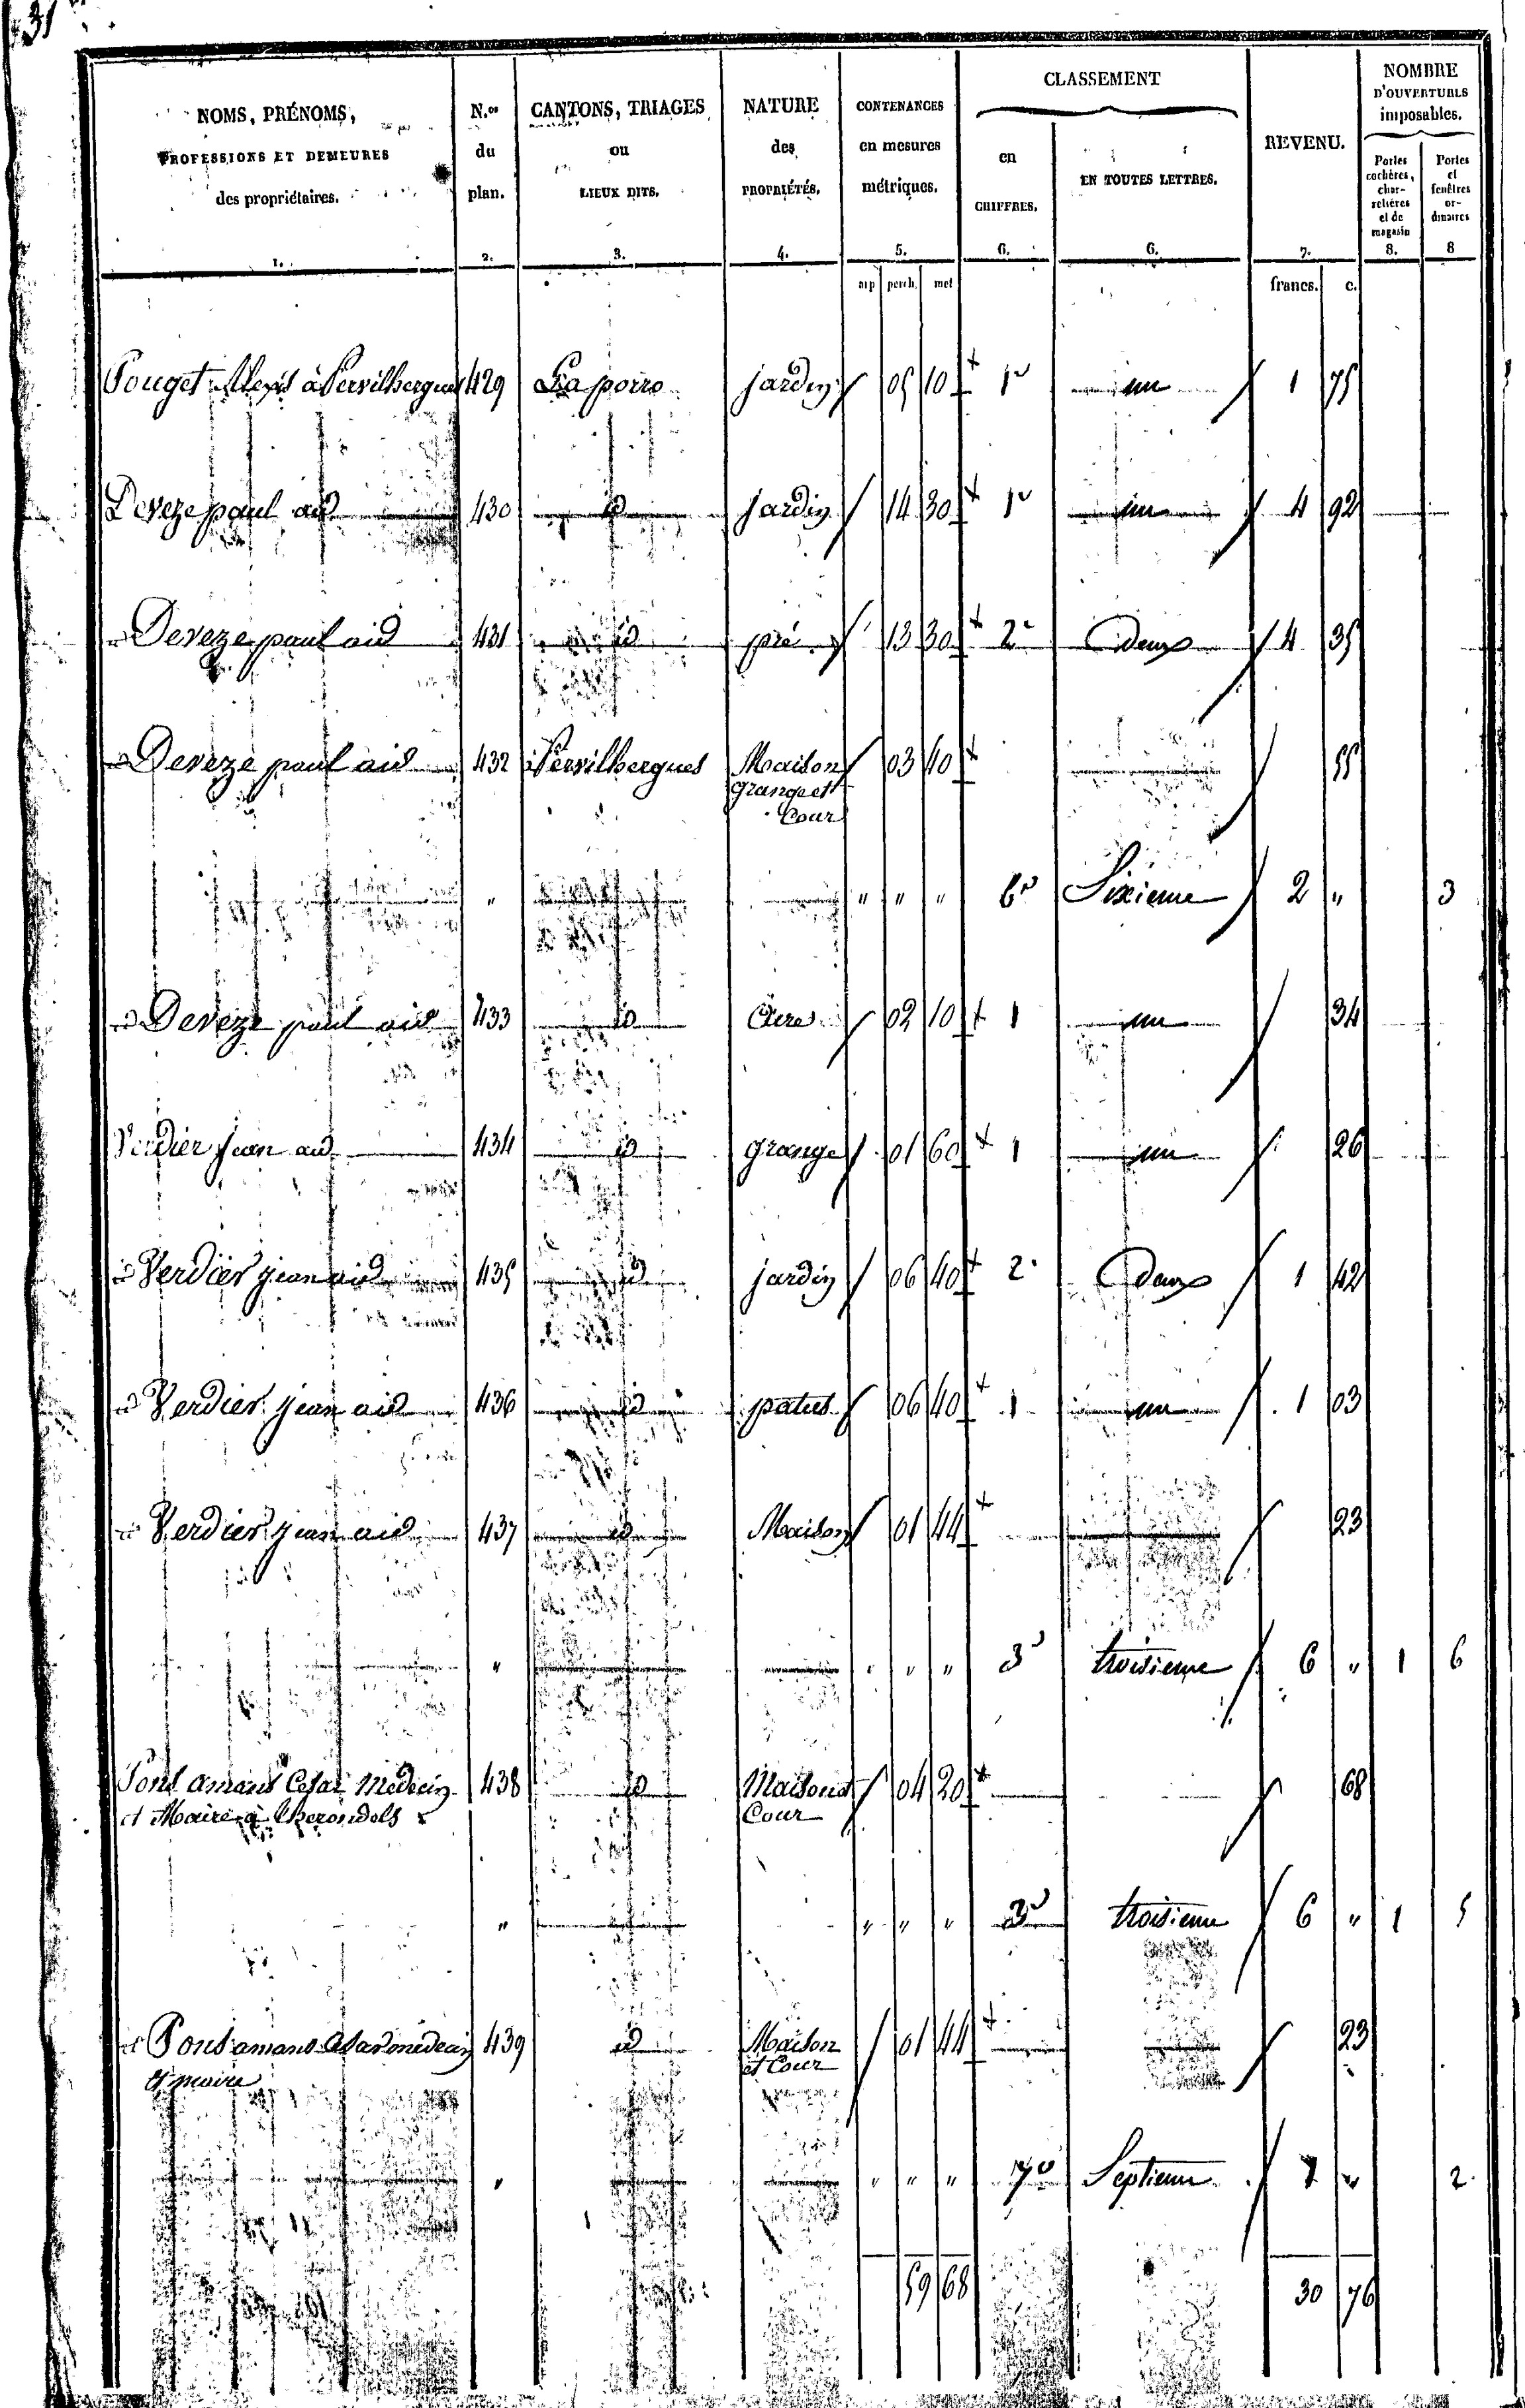 31
NOMS, PRÉNOMS, PROFESSIONS ET DEMEURES des propriétaires. 1.
N.os du plan. 2.
CANTONS, TRIAGES ou LIEUX DITS. 3.
NATURE des PROPRIÉTÉS. 4.
CONTENANCES en mesures métriques. 5.
CLASSEMENT
en CHIFFRES. 6.
EN TOUTES LETTRES. 6.
REVENU. 7.
NOMBRE D'OUVERTURES imposables.
Portes cochères, charretières et de magasin 8.
Portes et fenêtres ordinaires 8
arp perch. met francs. c.
Pouget Alexis à Pervilhergues 429 La poiro jardin 05 10 1e un 1 75
Deveze paul aid 430 id jardin 14 30 1e un 4 92
id Deveze paul aid 431 id pré 13 30 2e deux 4 35
id Deveze paul aid 432 Pervilhergues Maison 03 40 55
grange et
Cour
" " " " 6e Sixieme 2 " 3
id Deveze paul aid 433 id Aire 02 10 1 un 34
Verdier jean aid 434 id grange 01 60 1 un 26
id Verdier jean aid 435 id jardin 06 40 2e deux 1 42
id Verdier jean aid 436 id patus 06 40 1 un 1 03
id Verdier jean aid 437 id Maison 01 44 23
" " " " 3e troisieme 6 " 1 6
Pons amans Cesar Medecin 438 id Maison et 04 20 68
et Maire à Therondels Cour
" " " " 3e troisieme 6 " 1 5
id Pons amans Cesar medecin 439 id Maison 01 44 23
et maire et Cour
" " " " 7e Septieme 1 " 2
59 68 30 76